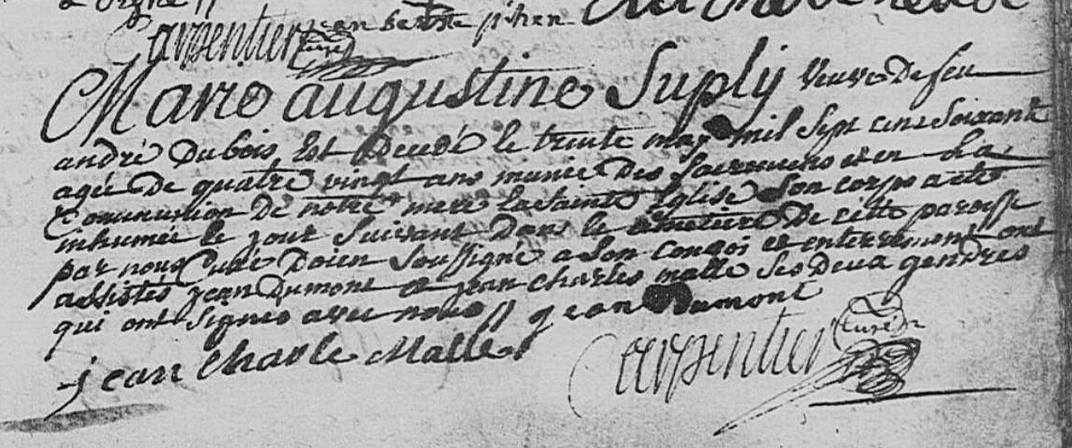 Carpentier Curé
Marie augustine Suply veuve De feu
andré Dubois Est Decedé le trente may mil Sept cent Soixante
agée De quatre vingt ans munie Des Sacremens et en La
Communion De notre mere La Sainte Eglise Son corps a eté
inhumée le jour Suivant Dans le cimetiere De cette paroisse
par nous Curé Doien Soussigné a Son convoi et enterrement ont
assistés jean Dumont et jean charles malle Ses Deux gendres
qui ont Signes avec nous // jean Dumont
jean Charle Malle
Carpentier Curé